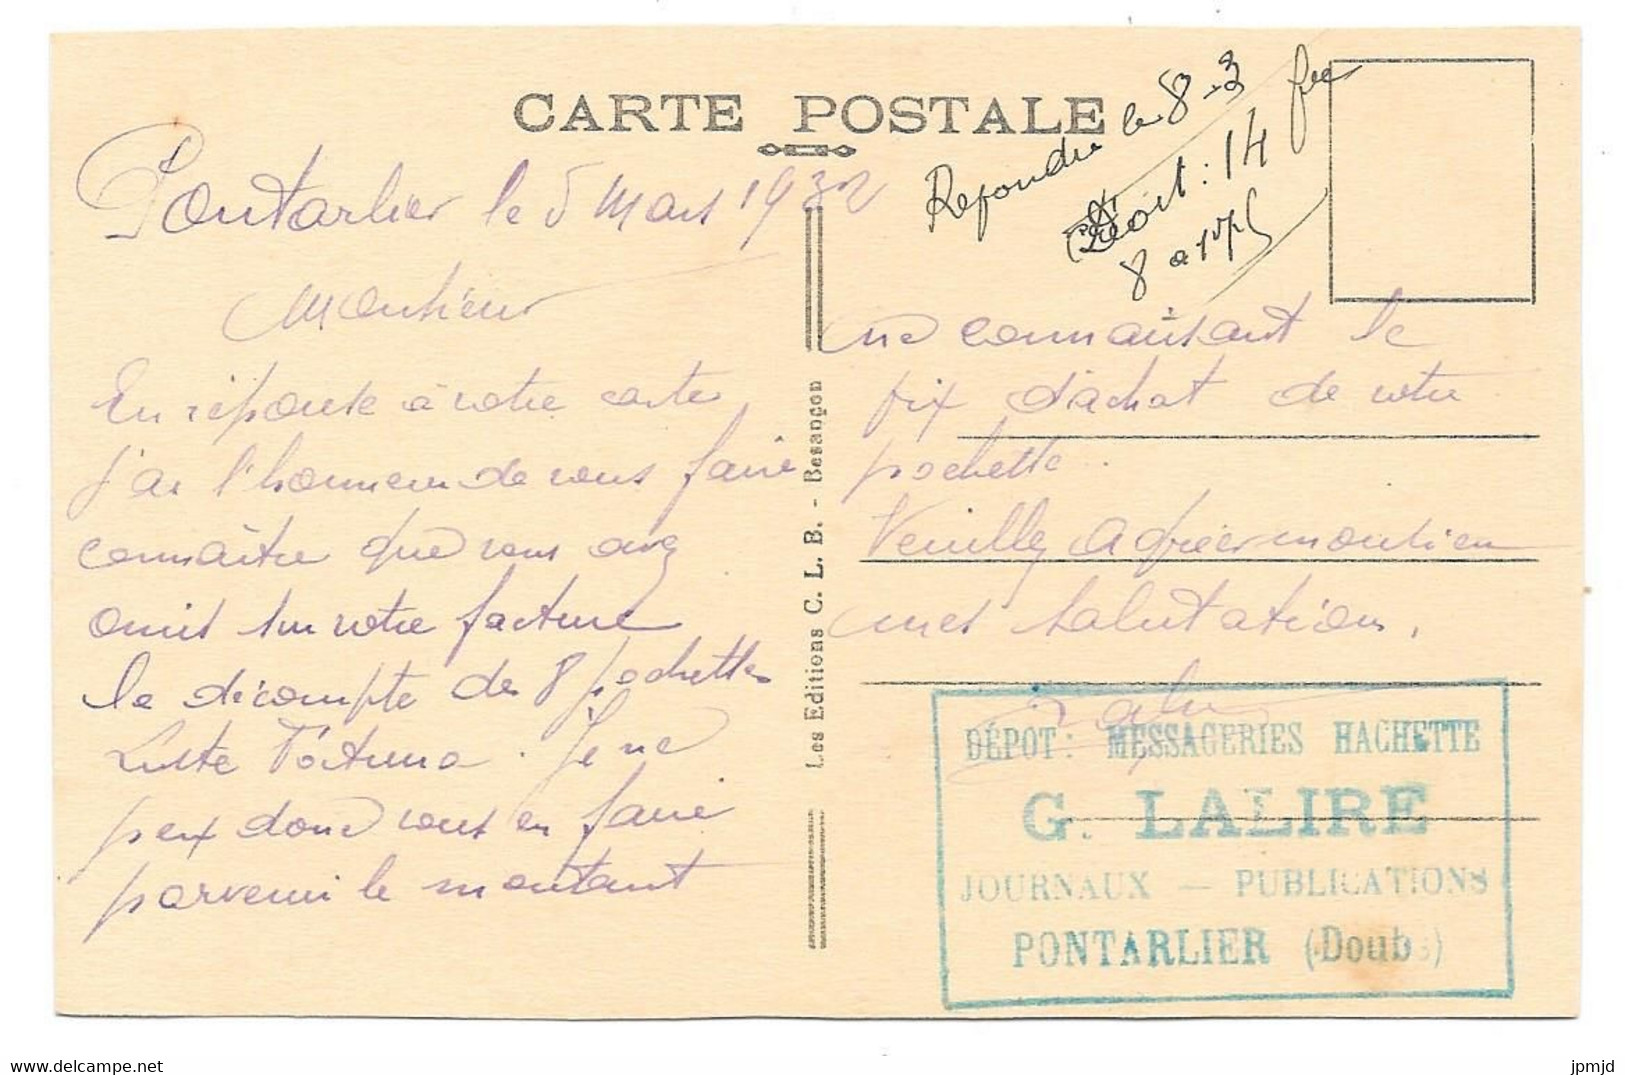 CARTE POSTALE
Pontarlier le 5 Mars 1932
Monsieur
En réponse à votre carte
j'ai l'honneur de vous faire
connaître que vous avez
omis sur votre facture
le décompte des 8 pochettes
Fortuna. Je ne
peux donc vous en faire
parvenir le montant
Repondu le 8-3
14
8 a
ne connaissant le
prix d'achat de votre
pochette.
Veuillez agréer monsieur
mes salutations.
Lalire
Les Editions C. L. B. - Besançon
DÉPOT: MESSAGERIES HACHETTE
G. LALIRE
JOURNAUX — PUBLICATIONS
PONTARLIER (Doubs)
jpmjd